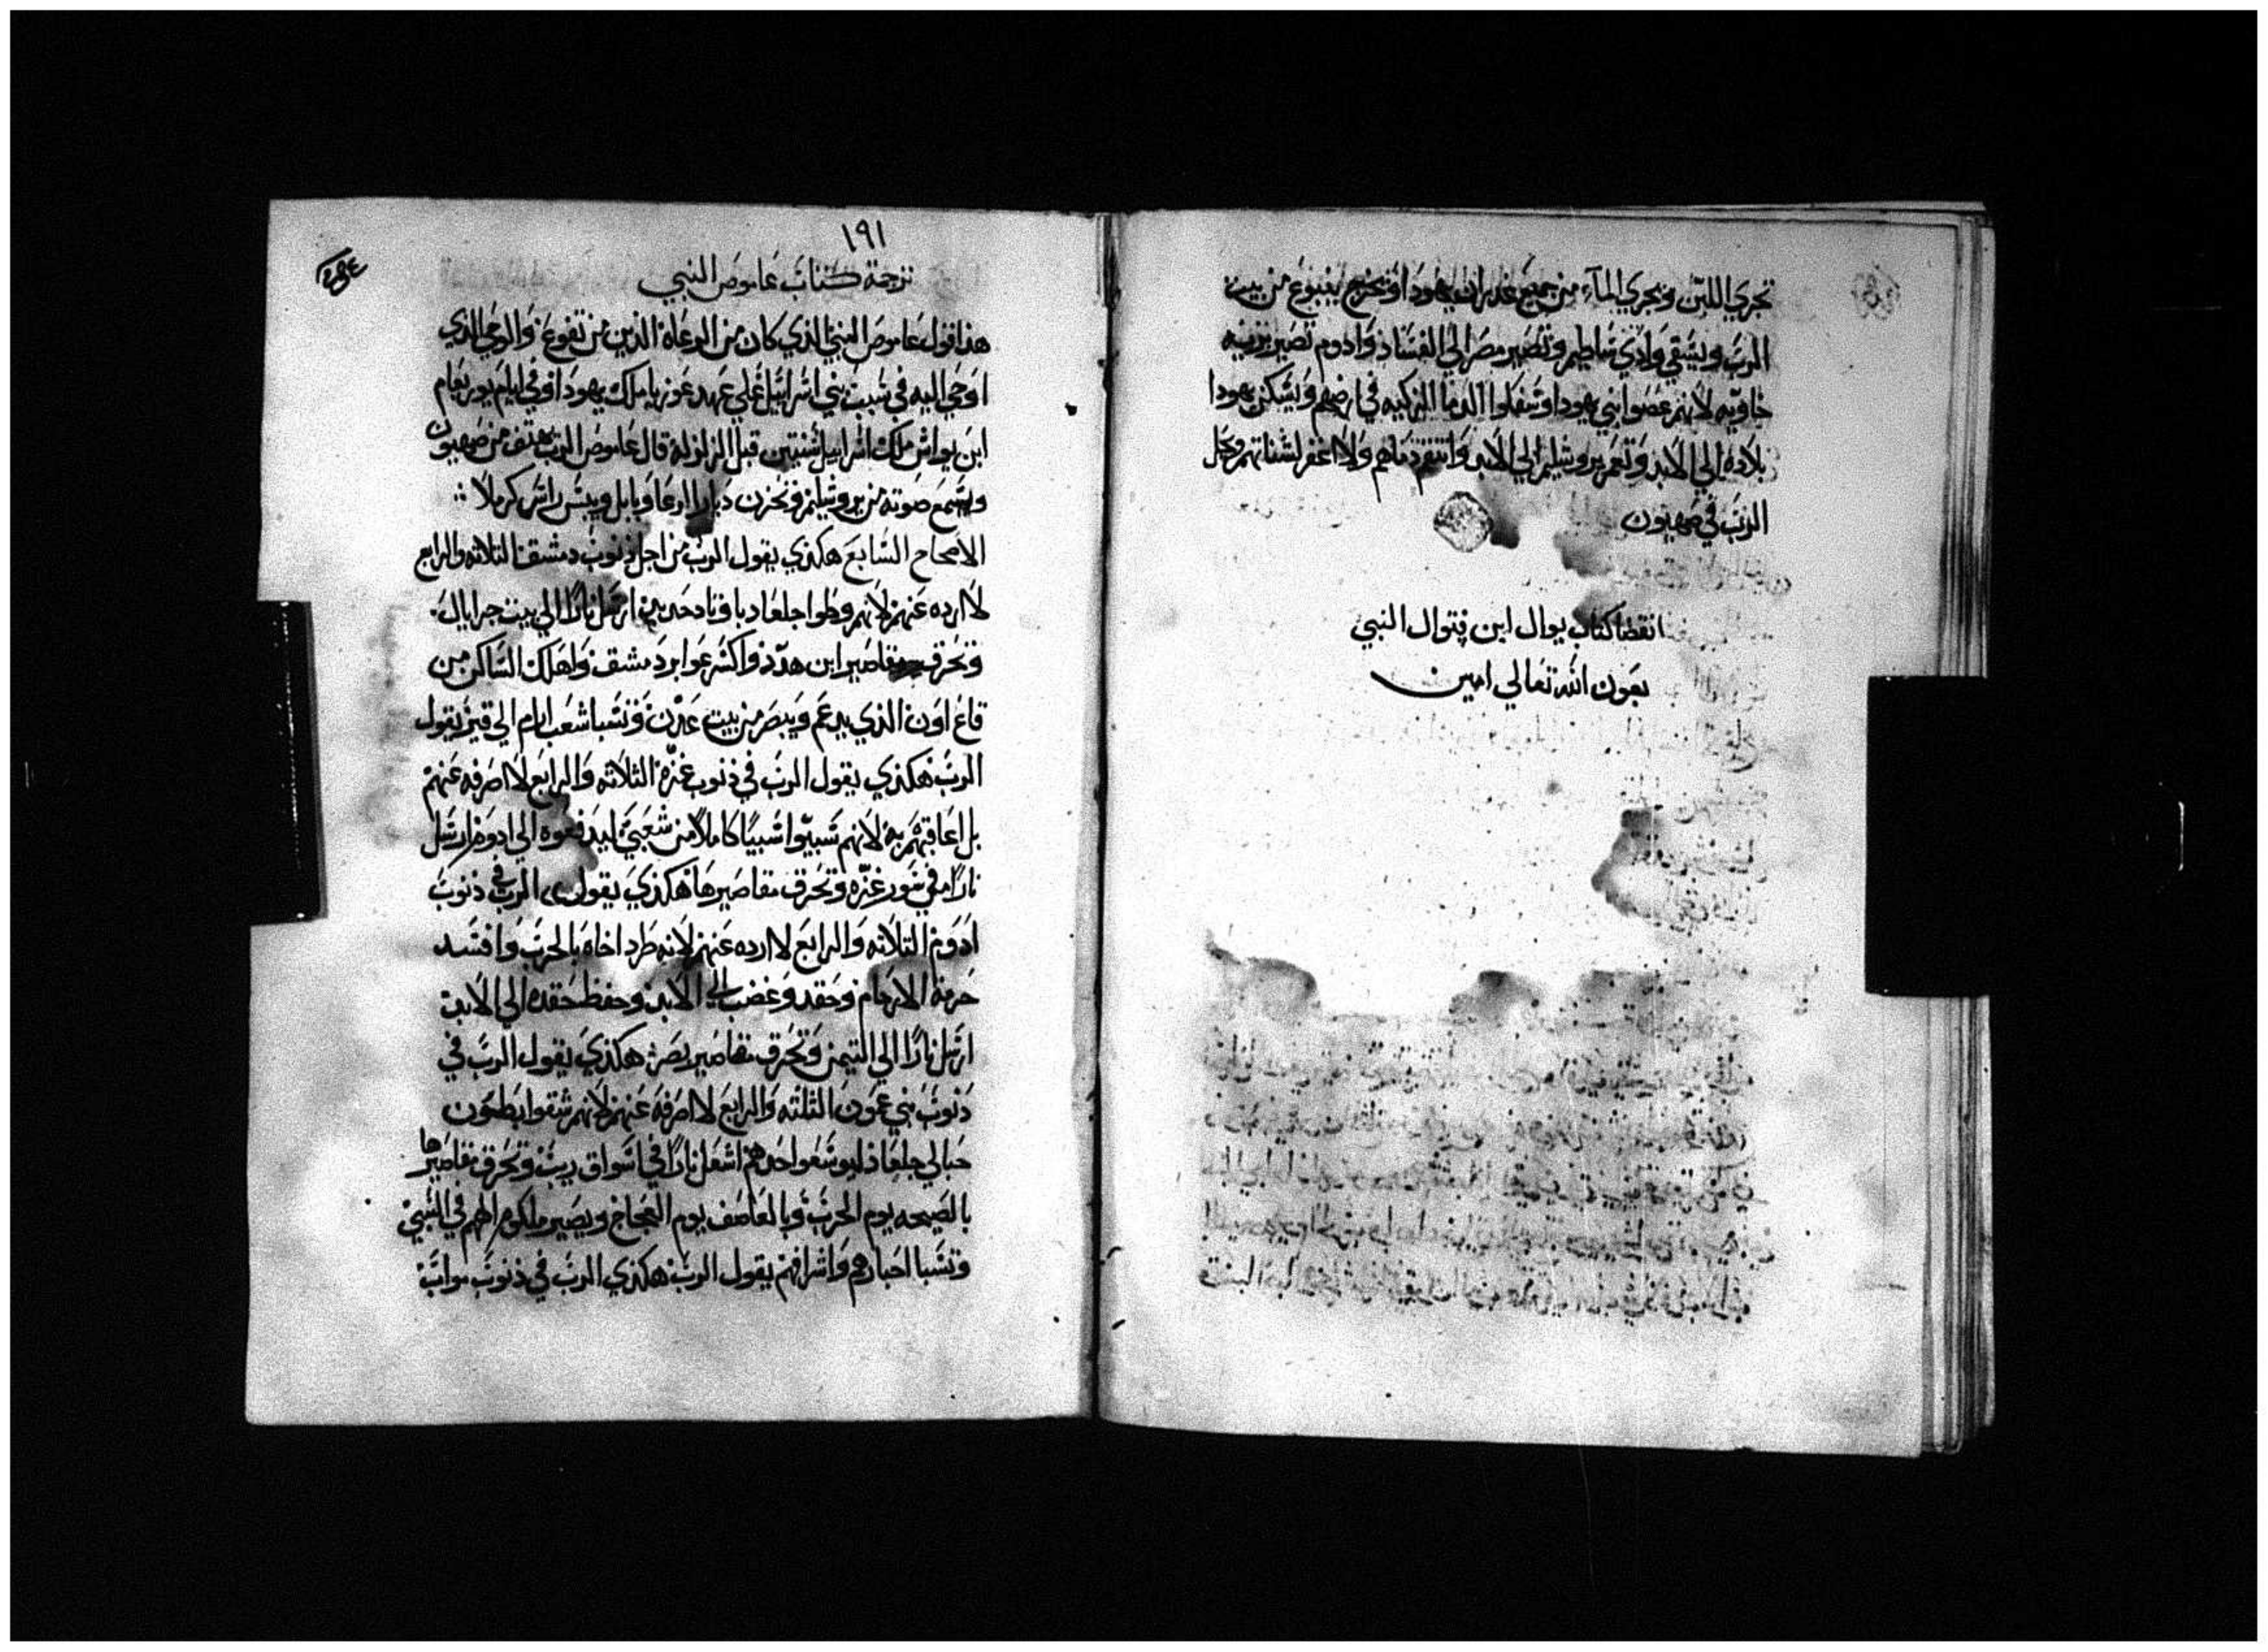 تجري اللبن وتجري المآء من جميع غدران يهودا وتخرج ينبوع من بيت
الرب ويسقي وادي ساطيم وتصير مصر الي الفساد وادوم تصير بريه
خاويه لانهم غصبوا بني يهودا وسفكوا الدما الزكيه في ارضهم ويسكن يهودا
بلاده الي الابد وتعمر يروشليم الي الابد وانتقم دماهم ولا اغفر لشناتهم ويحل
الرب في صهيون
انقضا كتاب يوال ابن فتوال النبي
بعون الله تعالي امين
١٩١
ترجمة كتاب عاموص النبي
هذا قول عاموص النبي الذي كان من الرعاة الذين من تقوع والوحي الذي
اوحي اليه في سبب بني اسراييل علي عهد عوزيا ملك يهودا وفي ايام يوربعام
ابن يواش ملك اسراييل سنتين قبل الزلزله قال عاموص الرب يهتف من صهيون
ويسمع صوته من يروشليم وتحزن ديار الرعاه ويابل وييبس راس كرملا
الاصحاح السابع هكذي يقول الرب من اجل ذنوب دمشق الثلاثه والرابع
لا ارده عنهم لانهم وطوا جلعاد باوتاد حديد ارسل نارا الي بيت حزاييل
وتحرق مقاصير ابن هدد واكسر عوابر دمشق واهلك الساكن من
قاع اون الذي يدعم ويبصر من بيت عدن وتسبا شعب ارام الي قير يقول
الرب هكذي يقول الرب في ذنوب غزة الثلاثه والرابع لا اصرفه عنهم
بل اعاقبهم به لانهم سبيوا سبيًا كاملًا من شعبي ليدفعوه الي ادوم ارسل
نارا في سور غزه وتحرق مقاصيرها هكذي يقول الرب في ذنوب
ادوم الثلاثه والرابع لا ارده عنهم لانه طرد اخاه بالحرب وافسد
حرمة الارحام وحقد وغضب الي الابد وحفظ حقده الي الابد
ارسل نارا الي التيمن وتحرق مقاصير بصر هكذي يقول الرب في
ذنوب بني عمون الثلثه والرابع لا اصرفه عنهم لانهم شقوا بطون
حبالي جلعاد ليوسعوا حدهم اشعل نارا في اسواق ربث وتحرق مقاصيرها
بالصيحه يوم الحرب وبالعاصف يوم العجاج ويصير ملكوم الههم في السبي
وتسبا احبارهم واشرافهم يقول الرب هكذي الرب في ذنوب مواب